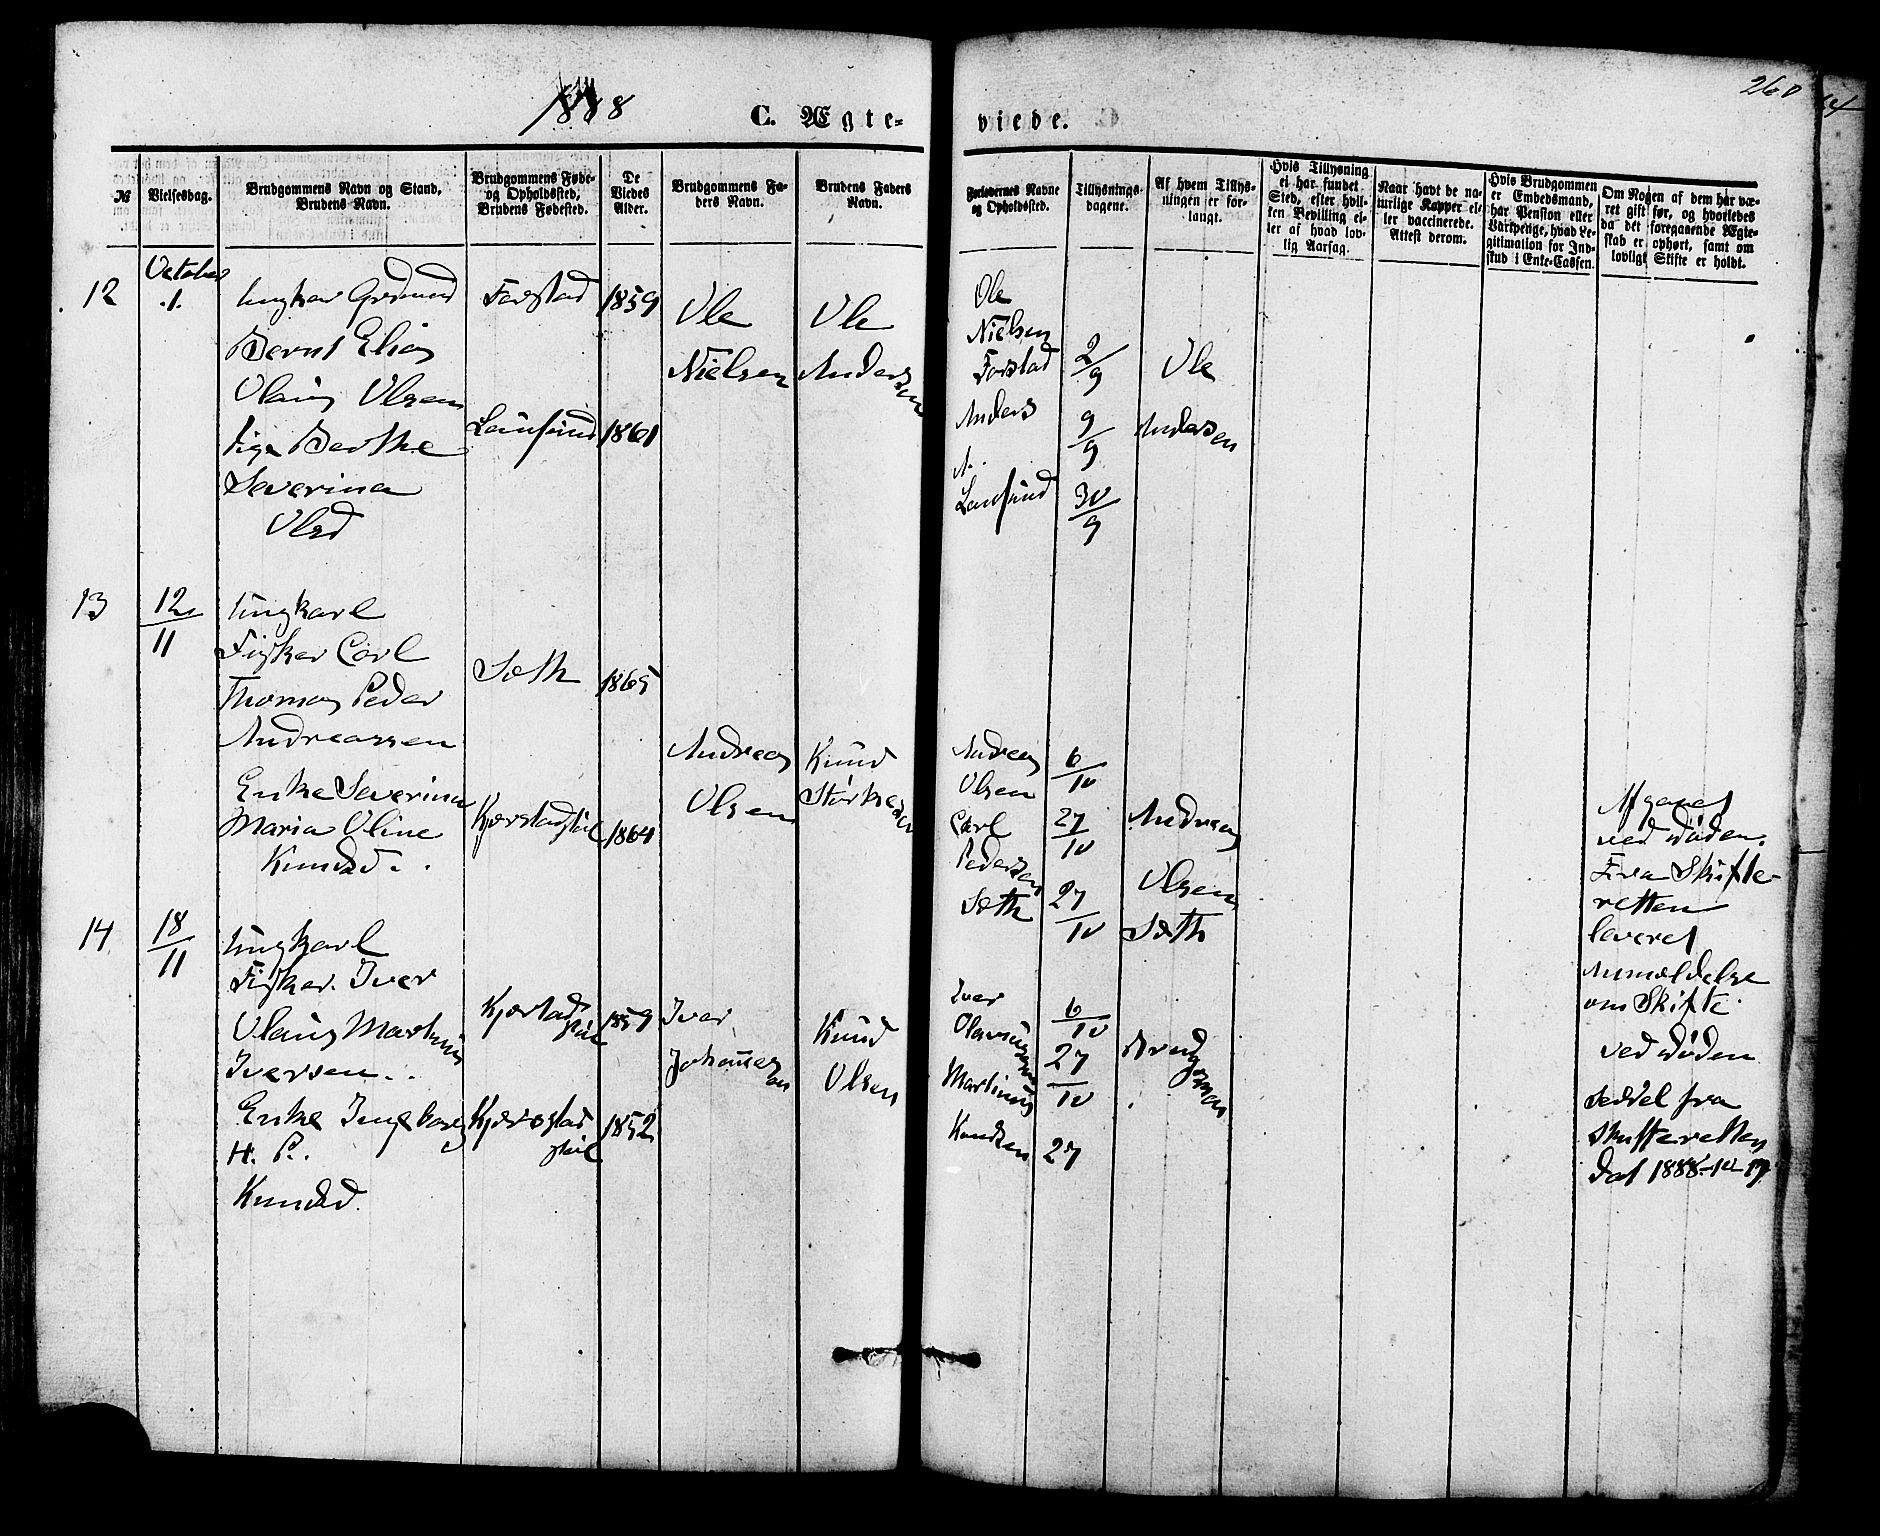 1888
C. Ægte-
viede.
260
№
Vielsesdag.
Brudgommens Navn og Stand,
Brudens Navn.
Brudgommens Føde-
og Opholdssted,
Brudens Fødested.
De
Viedes
Alder.
Brudgommens Fa-
ders Navn.
Brudens Faders
Navn.
Forlovernes Navne
og Opholdssted.
Tillysnings-
dagene.
Af hvem Tillys-
ningen er for-
langt.
Hvis Tillysning
ei har fundet
Sted, efter hvil-
ken Bevilling el-
ler af hvad lov-
lig Aarsag.
Naar havt de na-
turlige Kopper el-
ler vaccinerede.
Attest derom.
Hvis Brudgommen
er Embedsmand,
har Pension eller
Vartpenge, hvad Le-
gitimation for Ind-
skud i Enke-Cassen.
Om Nogen af dem har væ-
ret gift før, og hvorledes
da det foregaaende Ægte-
skab er ophørt, samt om
lovligt Skifte er holdt.
12
October
1.
Ungkar
Bernt Elias
Olaus Olsen
Pige Berthe
Severina
Olsd
Forstad
1859
1861
Ole
Nielsen
Ole
Andersen
Ole
Nielsen
Forstad
Anders
A.
2/9
9/9
30/9
Ole
Andersen
13
12/11
Ungkarl
Fisker Carl
Thomas Peder
Andreassen
Enke Severina
Maria Oline
Knudsd.
Sæth
1865
1864
Andreas
Olsen
Knud
Andreas
Olsen
Carl
Pedersen
Sæth
6/10
27/10
27/10
Andreas
Olsen
Sæth
Afganet
ved Døden.
Fra Skifte-
retten
leveret
Anmeldelse
om Skifte
14
18/11
Ungkarl
Fisker Iver
Olaus Martinus
Iversen.
Enke Ingeborg
H. P.
Knudsd.
1859
1852
Iver
Johannesen
Knud
Olsen
Iver
Martinus
Knudsen
6/10
27/10
27
Brudgommen
ved Døden
seddel fra
Skifteretten
dat 1888-10-17